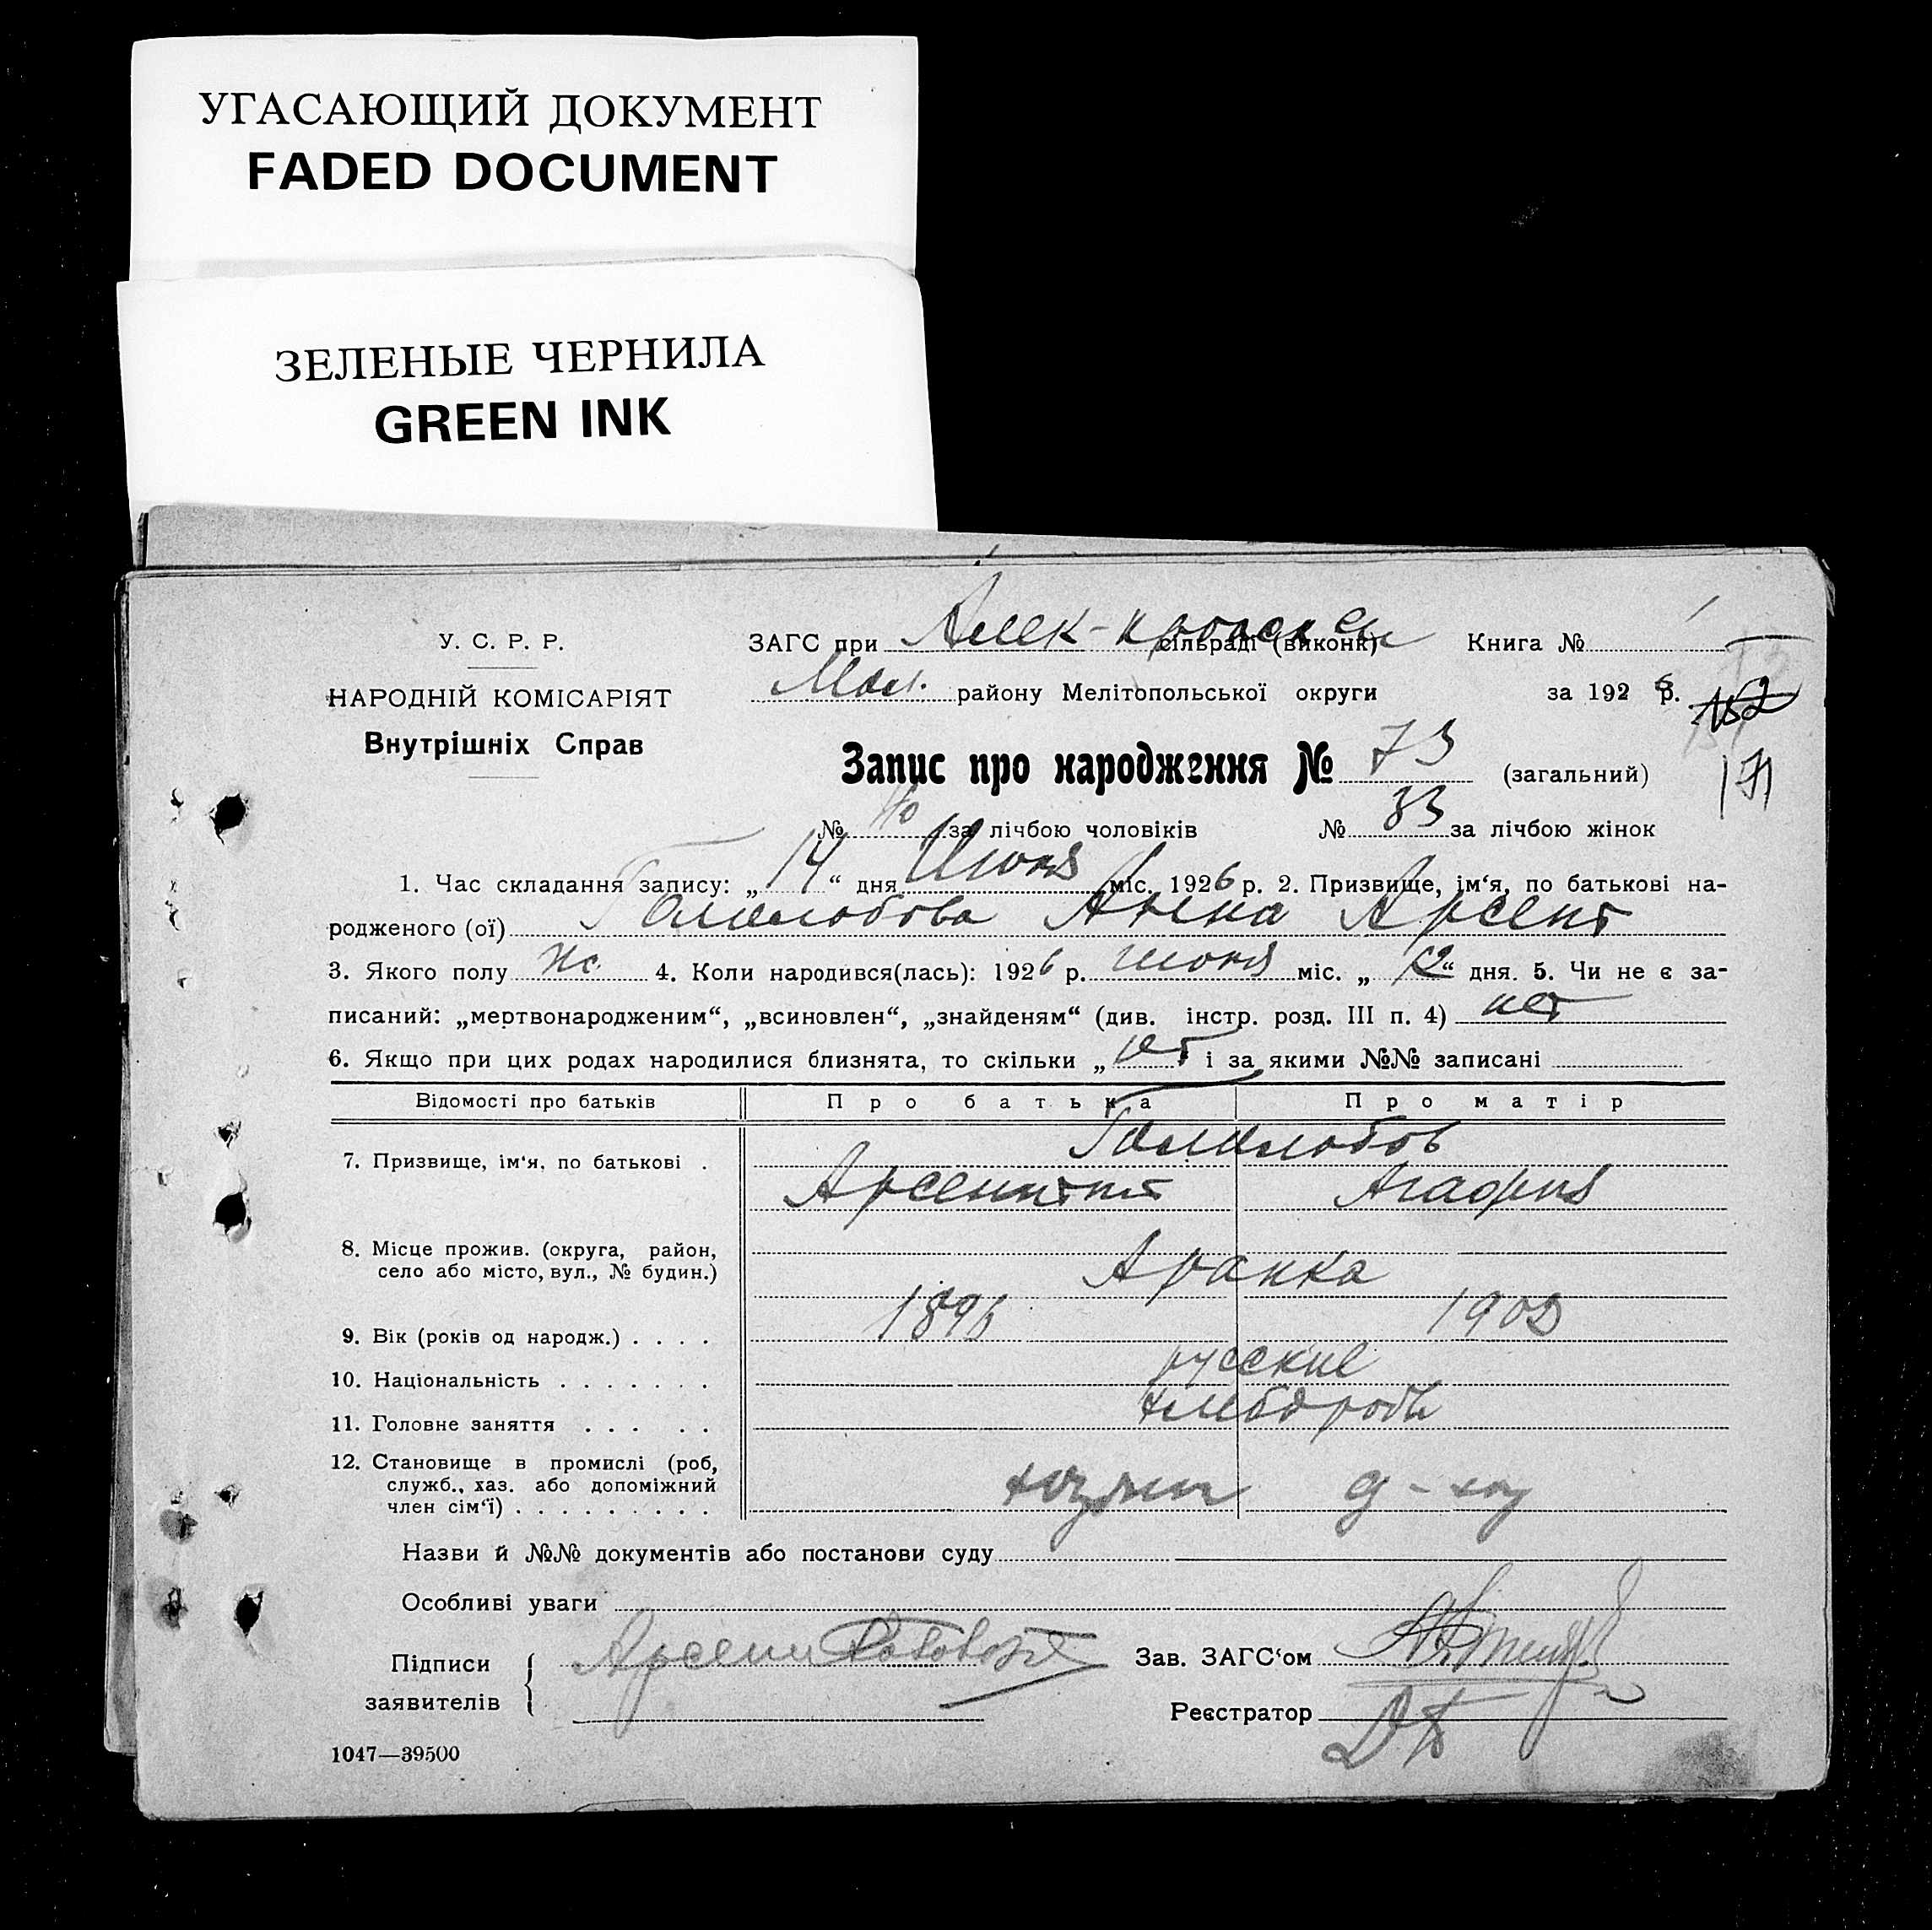 УГАСАЮЩИЙ ДОКУМЕНТ
FADED DOCUMENT
ЗЕЛЕНЫЕ ЧЕРНИЛА
GREEN INK
У. С. Р. Р.
НАРОДНІЙ КОМІСАРІЯТ
Внутрішніх Справ
ЗАГС при Алек- сільраді (виконк) Книга №
району Мелітопольської округи за 1926 р.
152
171
Запис про народження № 73 (загальний)
№ 40 за лічбою чоловіків № 33 за лічбою жінок
1. Час складання запису: „14“ дня Июня міс. 1926 р. 2. Призвище, ім‘я, по батькові на-
родженого (ої) Анна Арсент
3. Якого полу ж. 4. Коли народився(лась): 1926 р. июня міс. „12“ дня. 5. Чи не є за-
писаний: „мертвонародженим“, „всиновлен“, „знайденям“ (див. інстр. розд. III п. 4) нет
6. Якщо при цих родах народилися близнята, то скільки „нет“ і за якими №№ записані
Відомості про батьків Про батька Про матір
7. Призвище, ім‘я, по батькові .
Арсентий Агафия
8. Місце прожив. (округа, район,
село або місто, вул., № будин.)
9. Вік (років од народж.) . . . . 1896 1902
10. Національність . . . . . . . русские
11. Головне заняття . . . . . хлебороб
12. Становище в промислі (роб,
служб., хаз. або допоміжний
член сім‘ї) . . . . . . . . . хозяин д-хоз
Назви й №№ документів або постанови суду
Особливі уваги
Підписи
заявителів
Зав. ЗАГС‘ом
Реєстратор
1047—39500